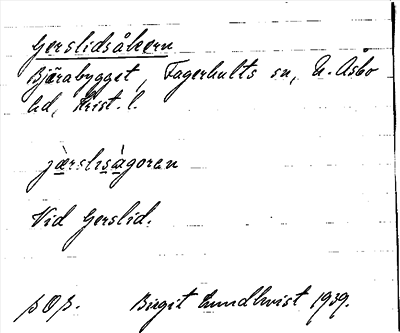 Gerslidsåkern
Bjärabygget, Fagerhults sn, N. Åsbo
hd, Krist. l.
jæ̀rslisàgoran
Vid Gerslid.
Birgit Lundkvist 1939.